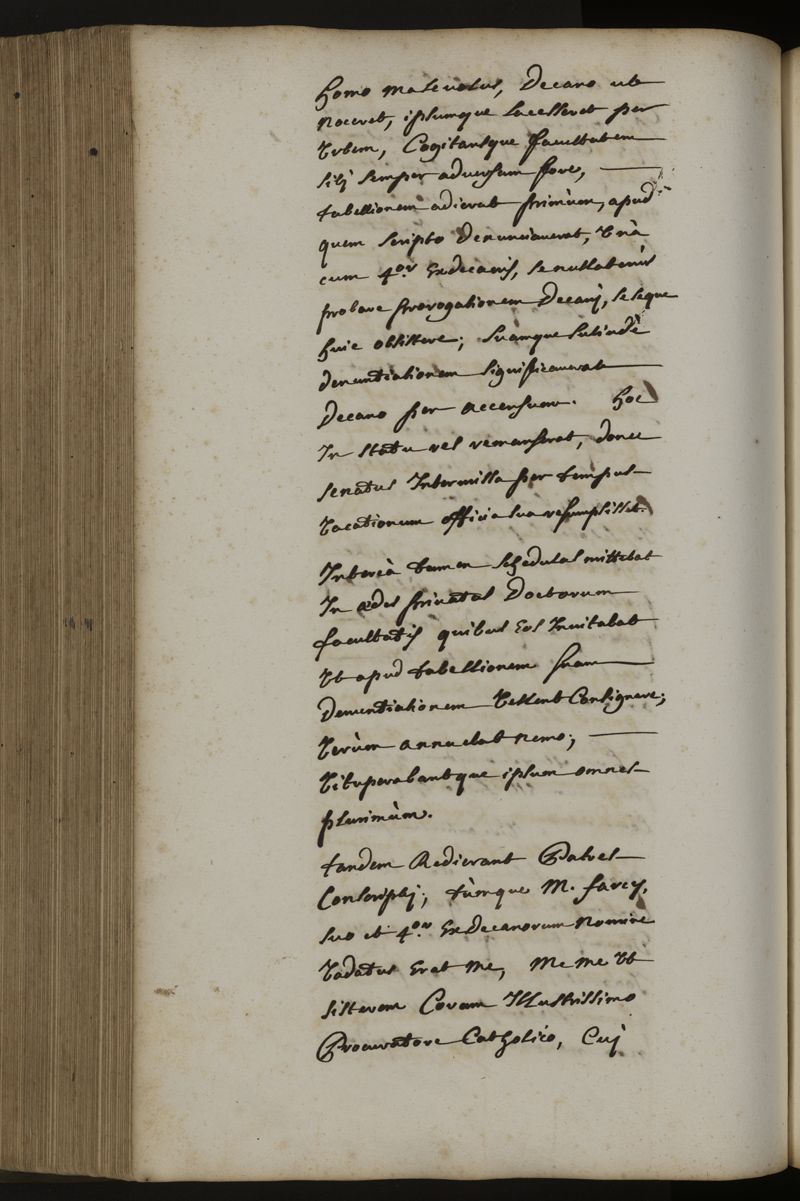 homo malevolus, Decano ut
noceret, ipsumque lacesseret per
Urbem, Cogitansque facultatem
sibj semper adversam fore,
tabellionem adierat primùm, apud
quem scripto denunciaverat, Unà
cum 4or Exdecanis, se nullatenùs
probare prorogationem Decanj, seseque
huic obsistere; suamque subindè
denuntiationem significaverat
Decano per accensum. hoc
In statu res remanserat, donec
senatus Intermissa per tempus
Vacationum officia sua resumpsisset.
Intereà tamen schedulas mittebat
In ædes privatas Doctorum
facultatis quibus Eos Invitabat
Ut apud tabellionem suam
denuntiationem Vellent Consignare;
Verùm annuebat nemo;
Vituperabantque ipsum omnes
plurimùm.
tandem Redierant Patres
Conscriptj; tùmque M. farcy,
suo et 4or Exdecanorum Nomine
Vadatus Erat me, Meme Ut
sisterem Coram Illustrissimo
Procuratore Catholico, Cuj